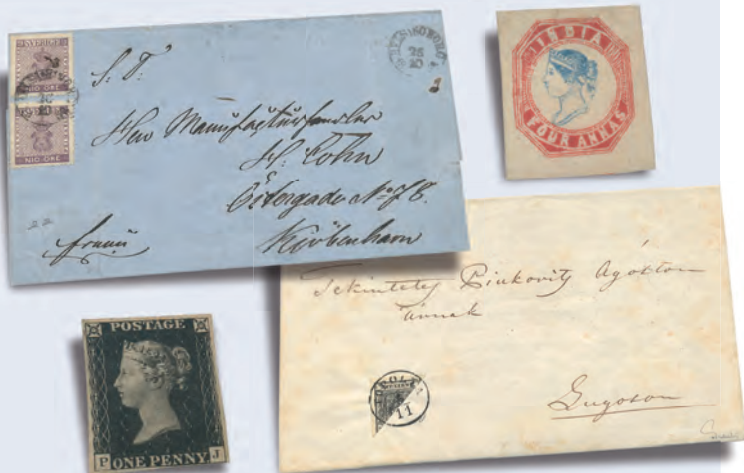 SVERIGE
NIO ÖRE
NIO ÖRE
HELSINGBORG
26
10
S. T.
Herr Manufacturhandler
H. Cohn
Östergade No 78.
Kiöbenhavn
franco
22
INDIA
FOUR ANNAS
POSTAGE
P ONE PENNY J
Tekintetes Ágoston
úrnak
Lugoson
11